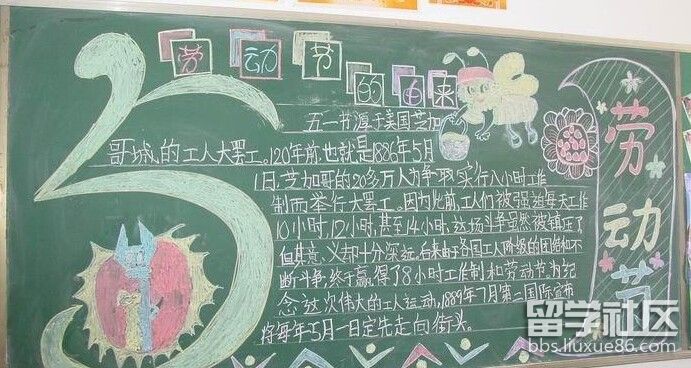 劳动节的由来
五一节源于美国芝加
哥城的工人大罢工。120年前,也就是1886年5月
1日,芝加哥的20多万人为争取实行八小时工作
制而举行大罢工。因为此前,工人们被强迫每天工作
10小时,12小时,甚至14小时,这场斗争虽然被镇压了
但其意义却十分深远。后来由于各国工人阶级的团结和
不断斗争,终于赢得了8小时工作制和劳动节。为纪
念这次伟大的工人运动,1889年7月第二国际宣布
将每年5月一日定先走向街头。
5
劳动节
留学社区
bbs.liuxue86.com